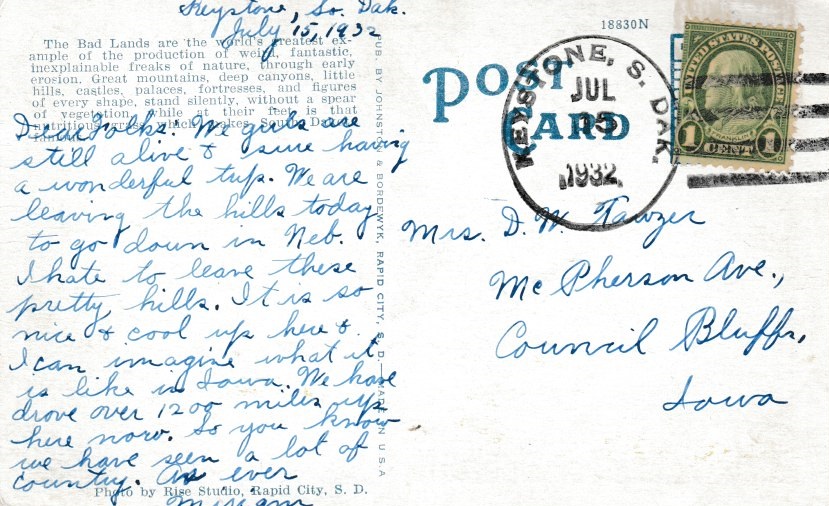 Keystone, So. Dak.
July 15, 1932
The Bad Lands are the world's greatest ex-
ample of the production of weird, fantastic,
inexplainable freaks of nature, through early
erosion. Great mountains, deep canyons, little
hills, castles, palaces, fortresses, and figures
of every shape, stand silently, without a spear
of vegetation, while at their feet is that
nutritious grass which makes South Dakota
Dear Folks: We girls are
still alive & sure having
a wonderful trip. We are
leaving the hills today
to go down in Neb.
I hate to leave these
pretty hills. It is so
nice & cool up here &
I can imagine what it
is like in Iowa. We have
drove over 1200 miles up
here now. So you know
we have seen a lot of
country. As ever
Miriam
Photo by Rise Studio, Rapid City, S. D.
PUB. BY JOHNSTON & BORDEWYK, RAPID CITY, S. D.—MADE IN U S A
18830N
POST
CARD
KEYSTONE, S. DAK.
JUL
15
1932
UNITED STATES POSTAGE
FRANKLIN
1 CENT 1
Mrs. D. W. Tawzer
McPherson Ave.,
Council Bluffs,
Iowa